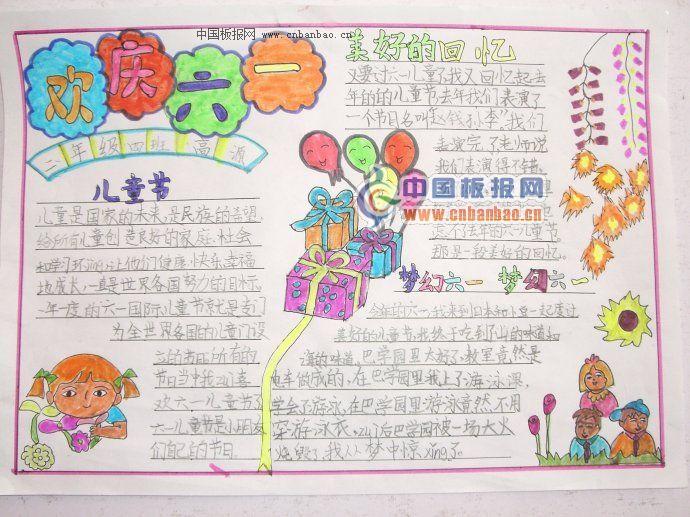 中国板报网 www.cnbanbao.cn
欢庆六一
二年级四班 高源
儿童节
儿童是国家的未来,是民族的希望
给所有儿童创造良好的家庭、社会
和学习环 让他们健康、快乐、幸福
地成长,一直是世界各国努力的目标。
一年一度的六一国际儿童节就是专门
为全世界各国的儿童们设
立的节日。所有的
节日当中我 喜
欢六一儿童节了
六一儿童节是小朋友
们自己的节日。
美好的回忆
又要过六一儿童了我又回忆起去
年的的儿童节去年我们表演了
一个节目名叫赵钱孙李。我们
表演完了老师说
我们表演得不错。
忘不了去年的六一儿童节。
那是一段美好的回忆。
中国板报网
www.cnbanbao.cn
梦幻六一 梦幻六一
今年的六一我来到日本和 一起度过
美好的儿童节,我终于吃到了山的味道和
海的味道,巴学园里太好了,教室竟然是
电车做成的,在巴学园里我上了游泳课,
学会了游泳,在巴学园里游泳竟然不用
穿游泳衣, 后巴学园被一场大火
烧毁了,我从梦中惊xing了。